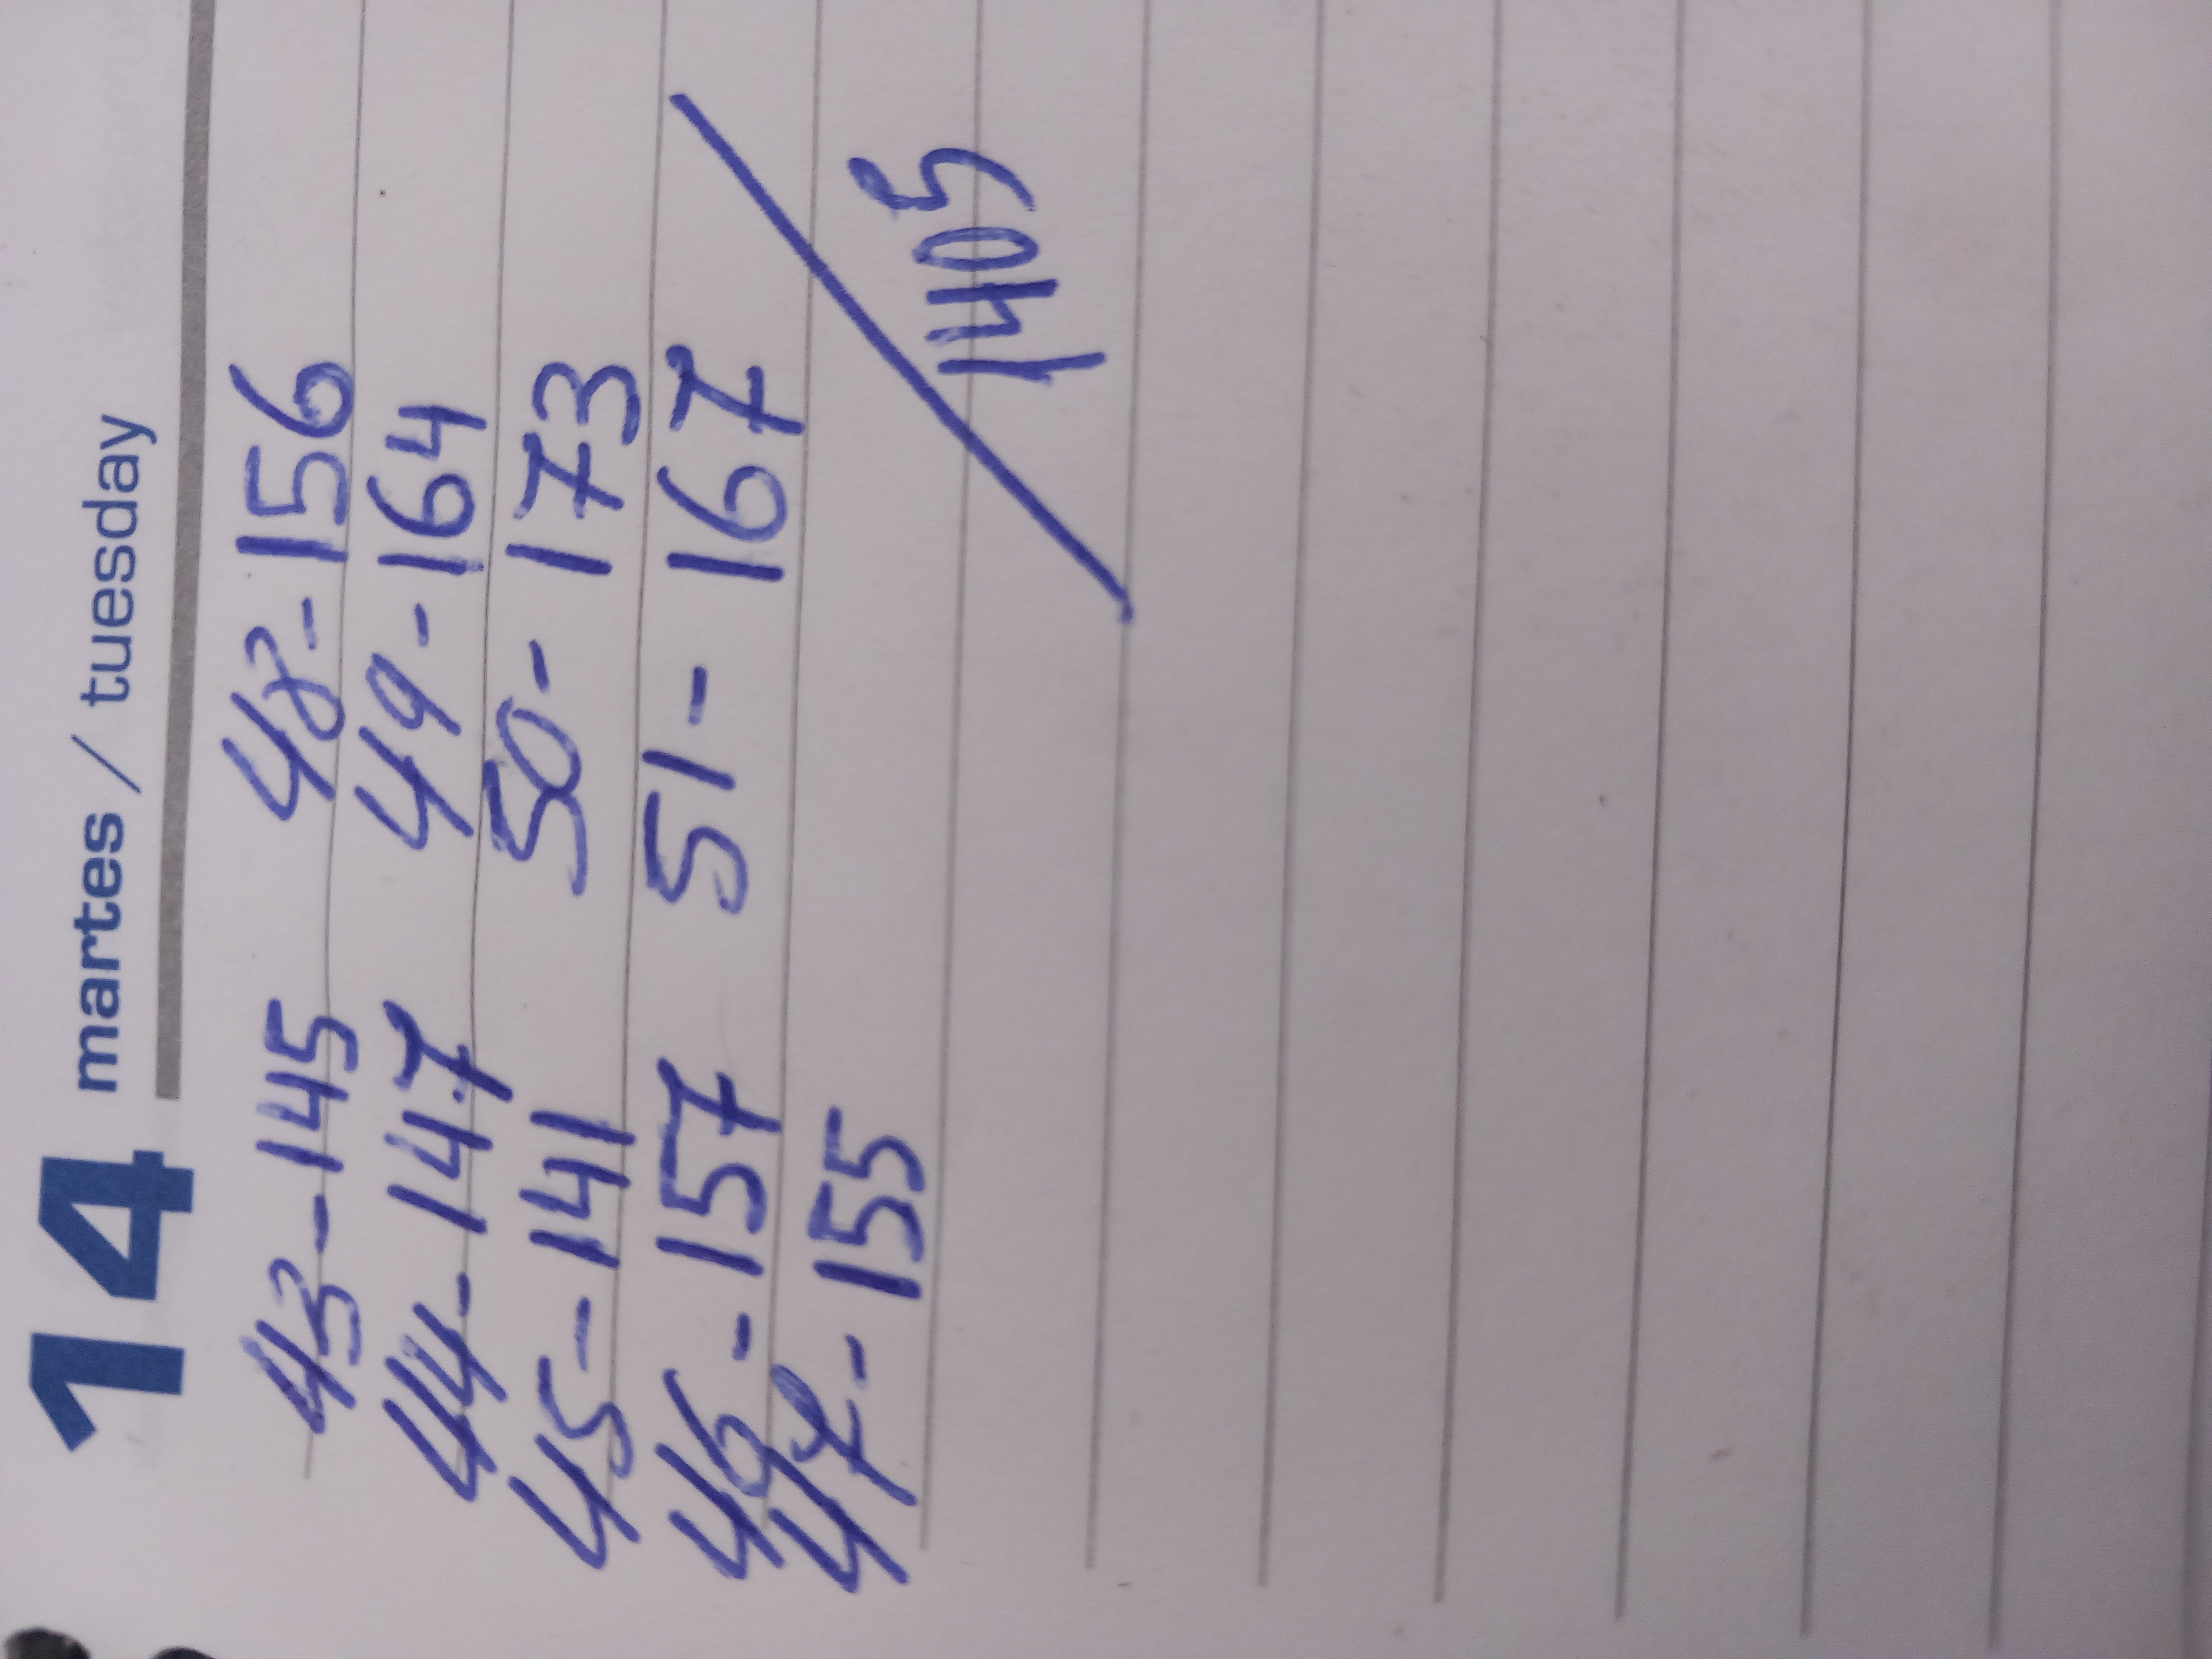 14 martes / tuesday
43-145 48-156
44-147 49-164
45-141 50-173
46-157 51-167
47-155
1405